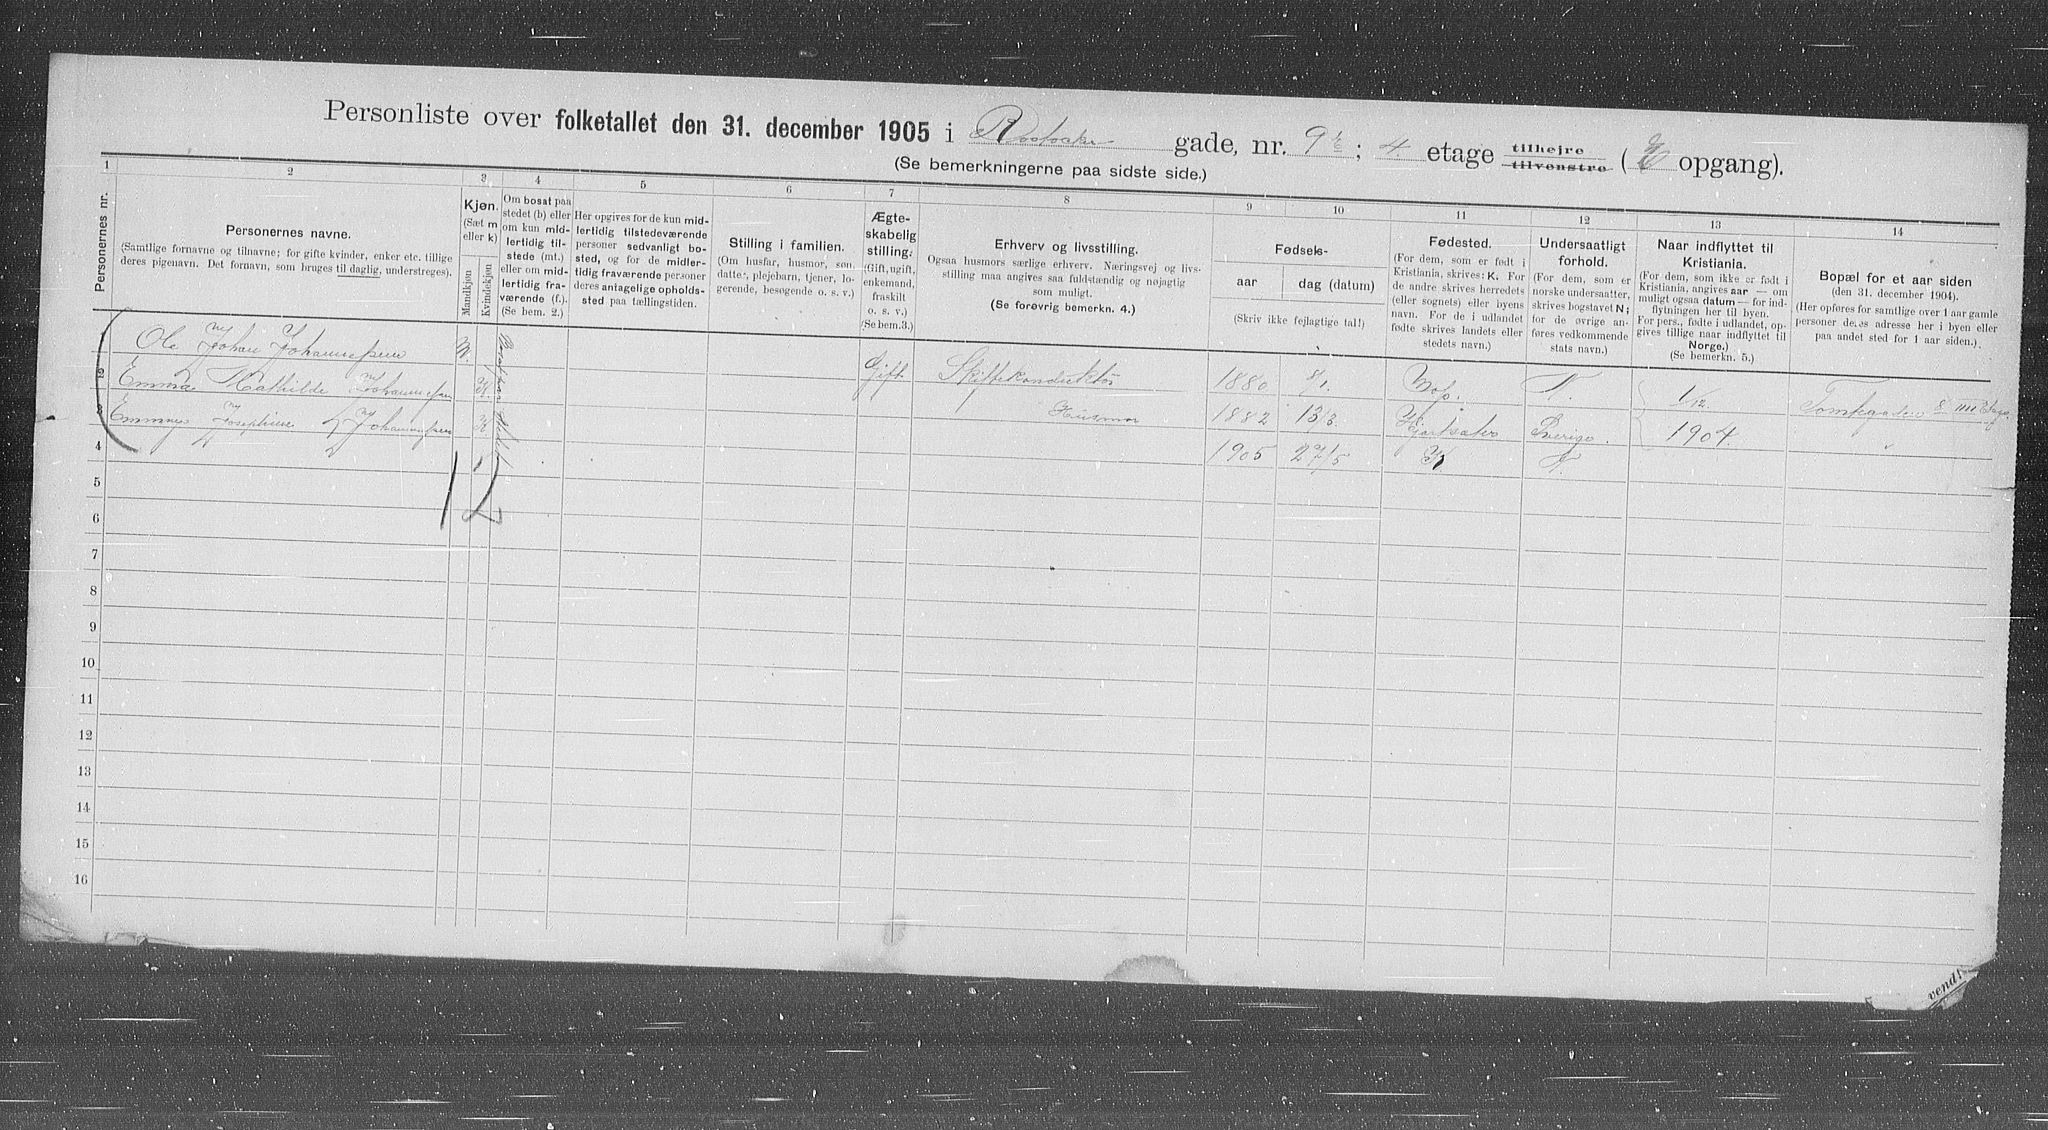 Personliste over folketallet den 31. december 1905 i Rostocker gade, nr. 9 ½ ; 4 etage tilhøjre tilvenstre ( opgang).
(Se bemerkningerne paa sidste side.)
1 2 3 4 5 6 7 8 9 10 11 12 13 14
Personernes nr.
Personernes navne.
(Samtlige fornavne og tilnavne; for gifte kvinder, enker etc. tillige
deres pigenavn. Det fornavn, som bruges til daglig, understreges).
Kjøn.
(Sæt m
eller k)
Mandkjøn
Kvindekjøn
Om bosat paa
stedet (b) eller
om kun mid-
lertidig til-
stede (mt.)
eller om mid-
lertidig fra-
værende (f.).
(Se bem. 2.)
Her opgives for de kun mid-
lertidig tilstedeværende
personer sedvanlig bo-
sted, og for de midler-
tidig fraværende personer
deres antagelige opholds-
sted paa tællingstiden.
Stilling i familien.
(Om husfar, husmor, søn,
datter, plejebarn, tjener, lo-
gerende, besøgende o. s. v.)
Ægte-
skabelig
stilling.
(Gift, ugift,
enkemand,
fraskilt
o. s. v.)
(Se bem. 3.)
Erhverv og livsstilling.
Ogsaa husmors særlige erhverv. Næringsvej og livs-
stilling maa angives saa fuldstændig og nøjagtig
som muligt.
(Se forøvrig bemerkn. 4.)
Fødsels-
aar dag (datum)
(Skriv ikke fejlagtige tal!)
Fødested.
(For dem, som er født i
Kristiania, skrives: K. For
de andre skrives herredets
(eller sognets) eller byens
navn. For de i udlandet
fødte skrives landets eller
stedets navn.)
Undersaatligt
forhold.
(For dem, som er
norske undersaatter,
skrives bogstavet N;
for de øvrige an-
føres vedkommende
stats navn.)
Naar indflyttet til
Kristiania.
(For dem, som ikke er født i
Kristiania, angives aar — om
muligt ogsaa datum — for ind-
flytningen her til byen.
For pers., fødte i udlandet, op-
gives tillige naar indflyttet til
Norge.)
(Se bemerkn. 5.)
Bopæl for et aar siden
(den 31. december 1904).
(Her opføres for samtlige over 1 aar gamle
personer deres adresse her i byen eller
paa andet sted for 1 aar siden.)
1 Ole Johan Johannessen M. Gift Skiftekonduktør 1880 8/1. N. 1/12.
2 Emma Mathilde Johannessen K. Husmor 1882 13/3. Sverige. 1904
3 Emmy Josephine Johannessen K 1905 27/5 K N.
4
5
6
7
8
9
10
11
12
13
14
15
16
12
vend!